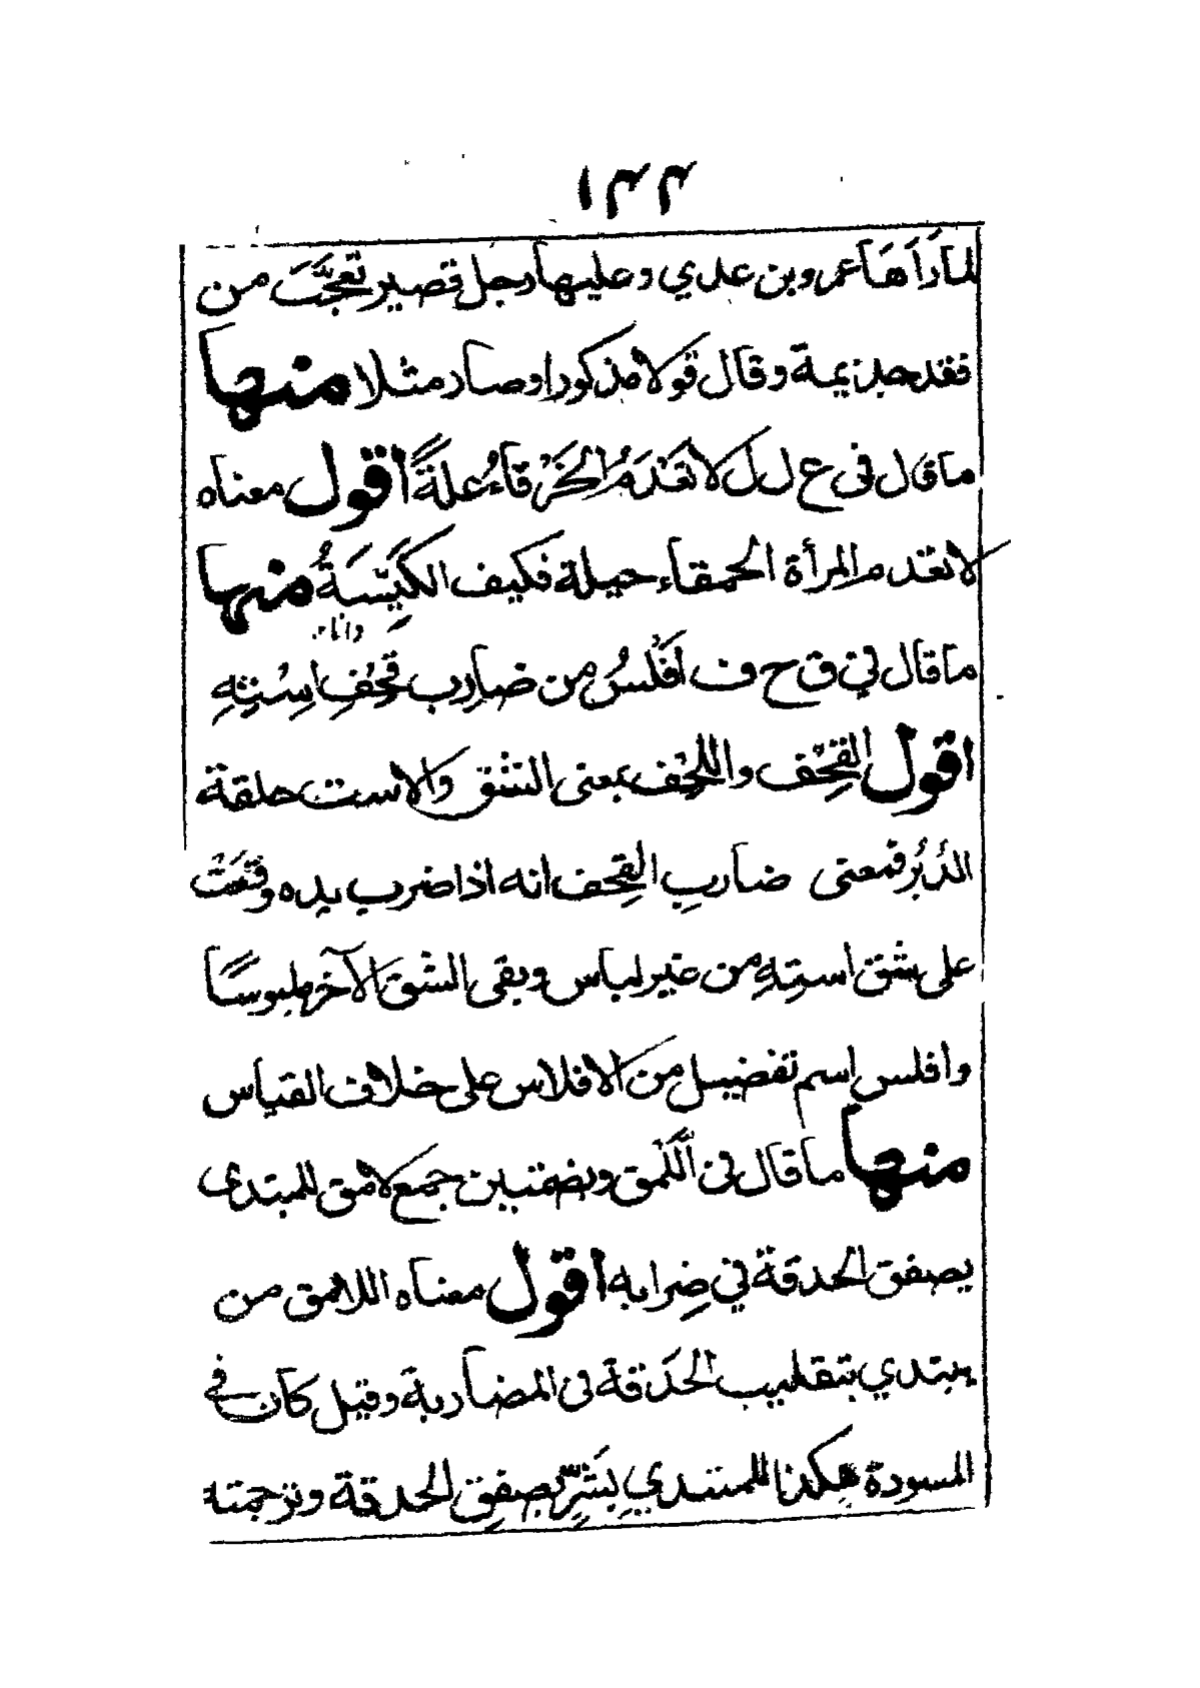 ١٣٣
لما رَاَهَا عمرو بن عدي وعليها رجل قصير تعجَّبَ من
فقد جذيمة وقال قولا مذكورا وصار مثلا منها
ما قال فى ع ل ل لا تَعْدَمُ الخَرْقَاءُ علةً اقول معناه
لا تعدم المرأة الحمقاء حيلة فكيف الكَيِّسَةُ منها
ما قال في ق ح ف اَفْلَسُ من ضارِب قِحْفِ اِسْتِهِ
اقول القِحْف واللِحْف بمعنى الشق والاست حلقة
الدُبُر فمعنى ضاربِ القِحف انه اذا ضرب يده وقعَتْ
على شق استِهِ من غير لباس وبقى الشق الآخر ملبوسًا
وافلس اسم تفضيل من الافلاس على خلاف القياس
منها ما قال فى اللَّمق وبضمتين جمع لامق للمبتدى
يصفق الحدقة في ضِرابه اقول معناه اللامق من
يبتدي بتقليب الحَدَقة فى المضاربة وقيل كان في
المسودة هكذا للمبتدي بَشَرٍّ يصفِق الحدقة وترجمته